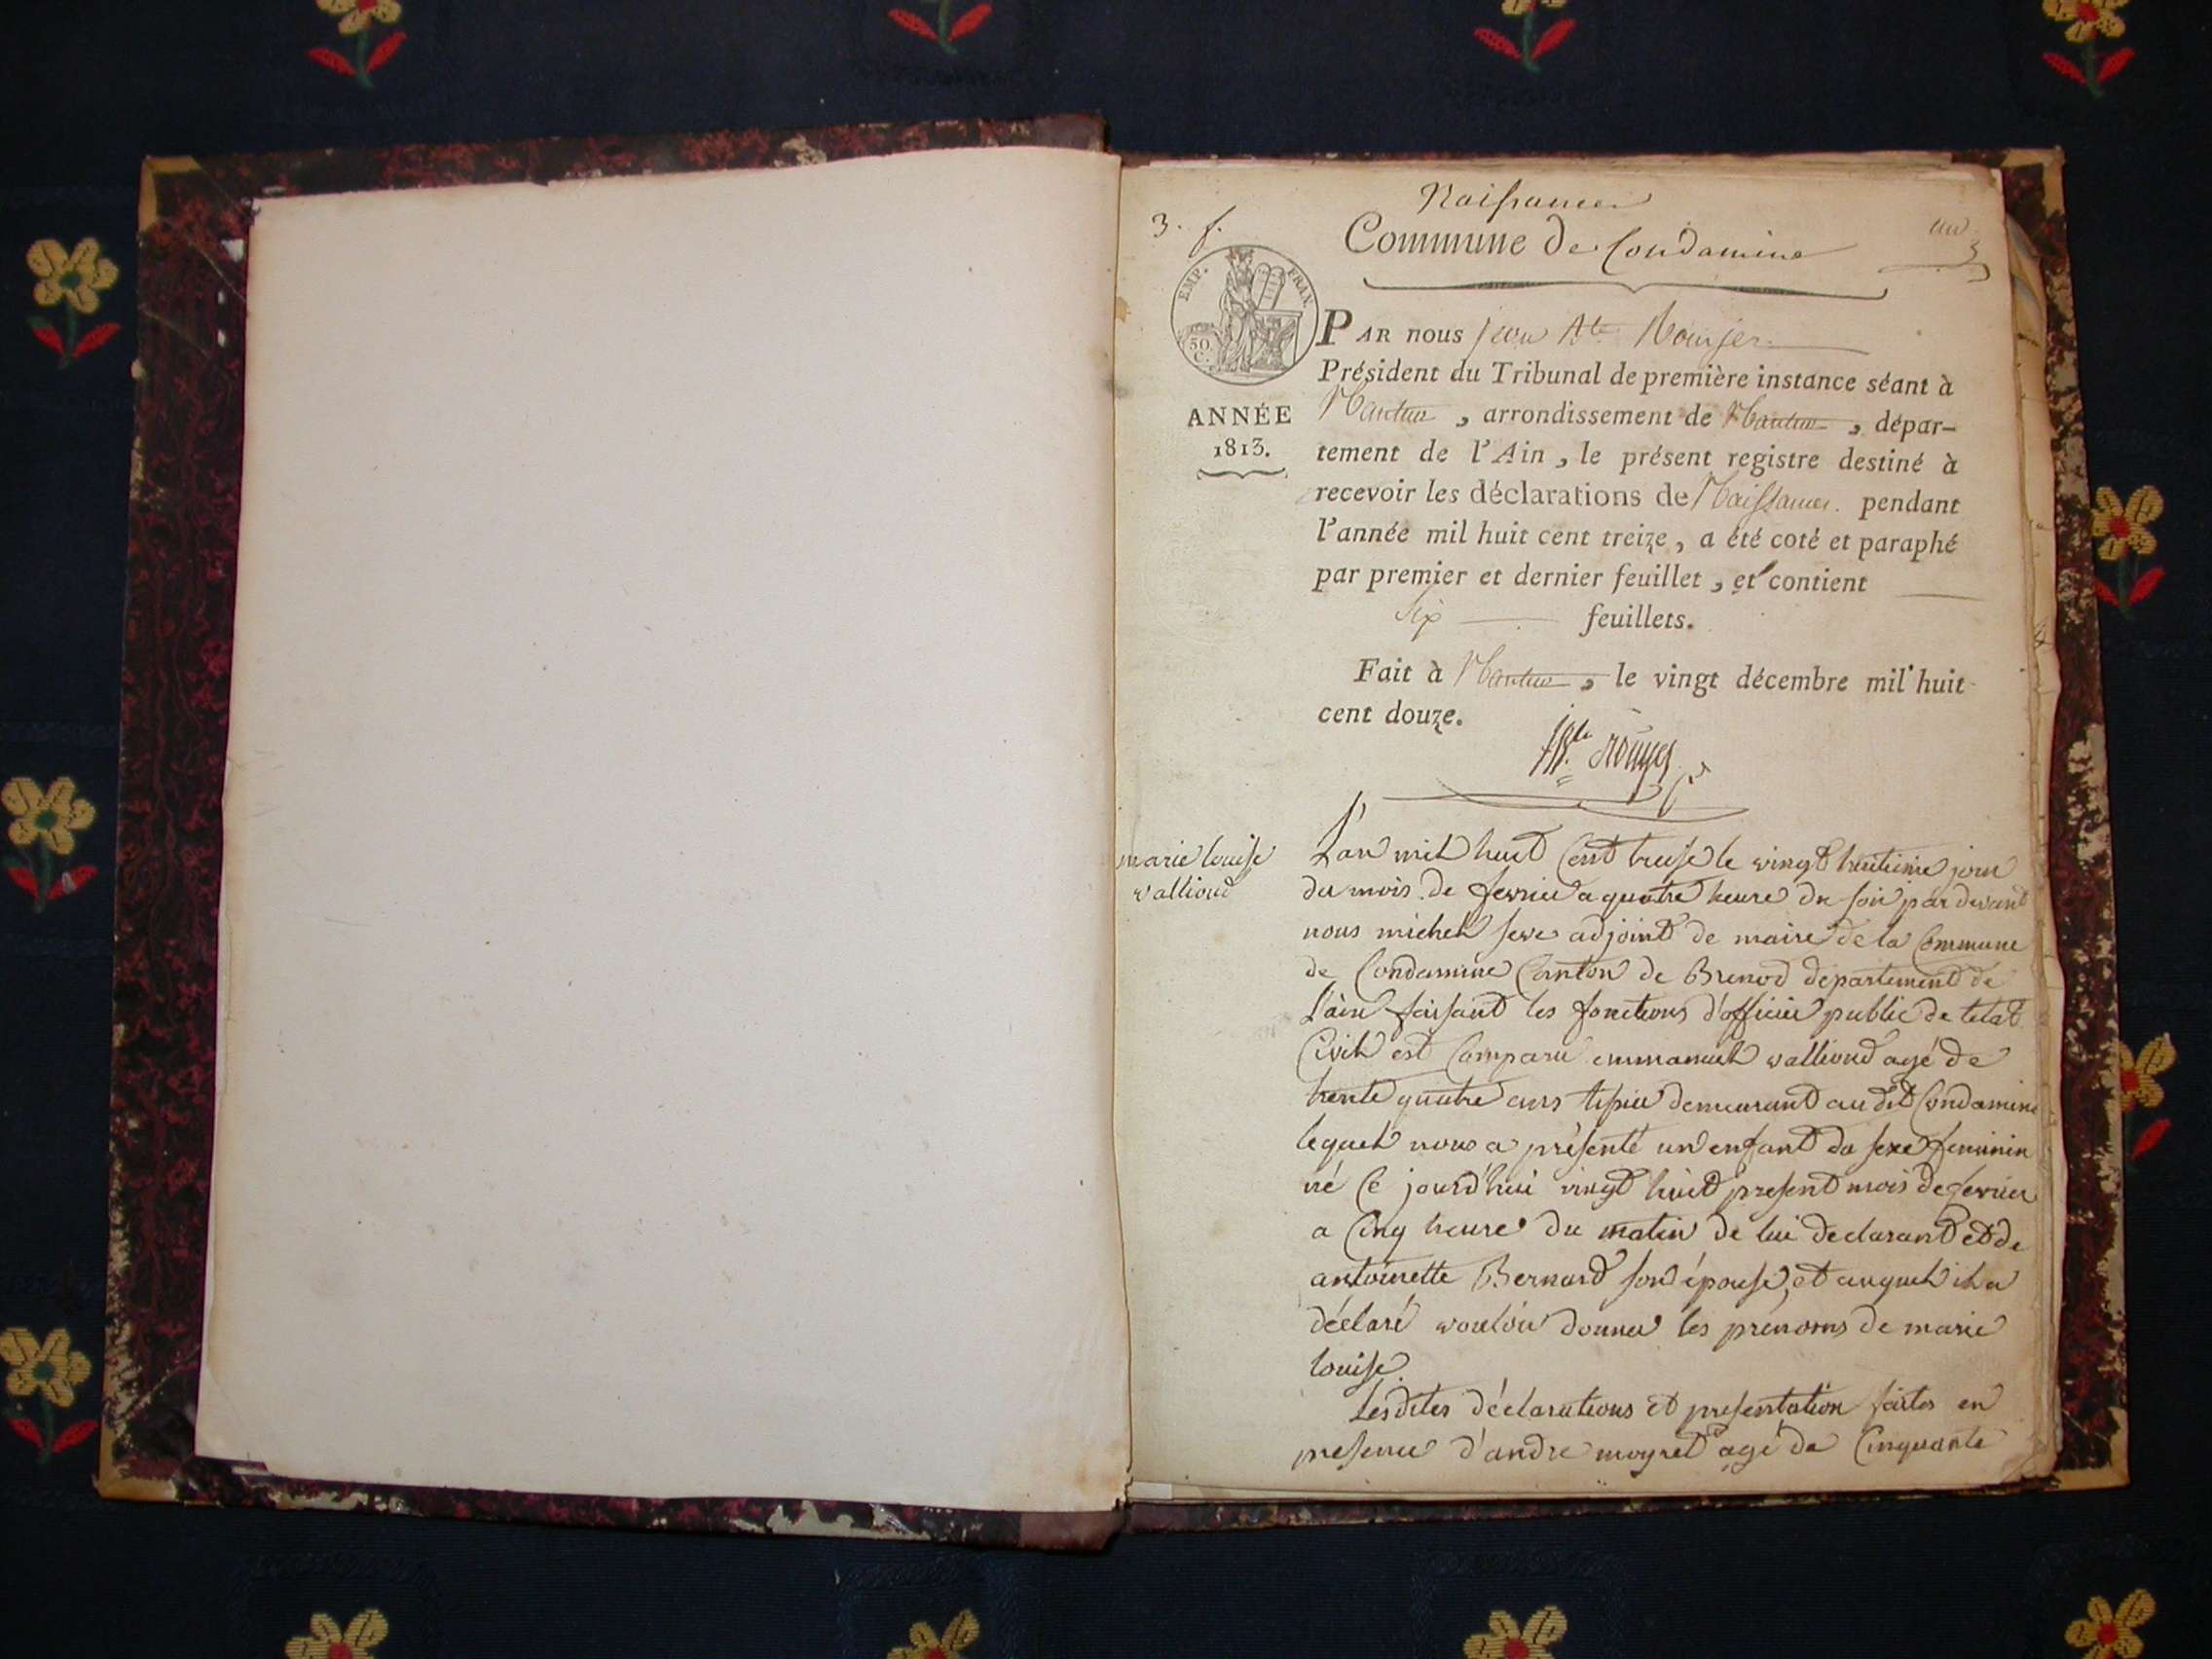 Naissances
3. f.
Commune de Condamine
un
EMP. FRAN.
50 C.
PAR nous jean Bte. Rouyer
Président du Tribunal de première instance séant à
Nantua, arrondissement de Nantua, dépar-
ANNÉE
1813.
tement de l'Ain, le présent registre destiné à
recevoir les déclarations de Naissances. pendant
l'année mil huit cent treize, a été coté et paraphé
par premier et dernier feuillet, et contient
six feuillets.
Fait à Nantua, le vingt décembre mil huit
cent douze.
JBte Rouyer
marie louise
wallioud
L'an mil huit Cent treise le vingt huitieme jour
du mois de fevrier a quatre heure du soir par devant
nous michel seve adjoint de maire de la Commune
de Condamine Canton de Brenod departement de
l'ain faisant les fonctions d'officier public de letat
Civil est Comparu emmanuel wallioud agé de
trente quatre ans tepier demeurant au dit Condamine
lequel nous a présenté un enfant du sexe feminin
né Ce jourd'hui vingt huit present mois de fevrier
a Cinq heure du matin de lui declarant et de
antoinette Bernard son épouse, et auquel il a
déclaré wouloir donner les prenoms de marie
louise.
Lesdites déclarations et presentation faites en
presence d'andre moyret agé de Cinquante